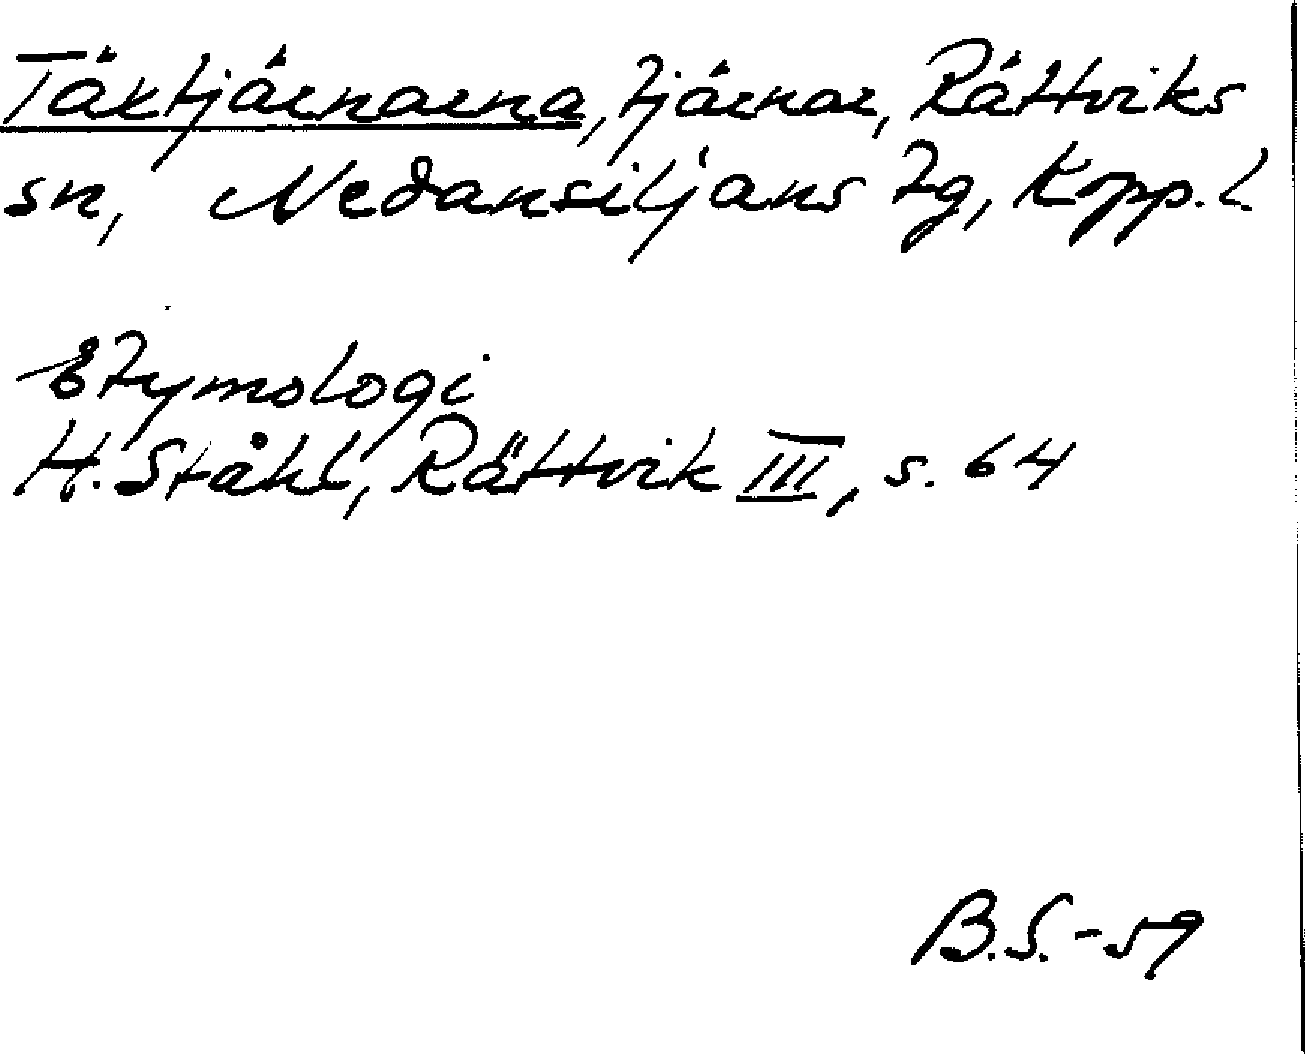 Täktjärnarna, tjärnar, Rättviks
sn, Nedansiljans tg, Kopp. l.
Etymologi
H. Ståhl, Rättvik III, s. 64
B.S.-59